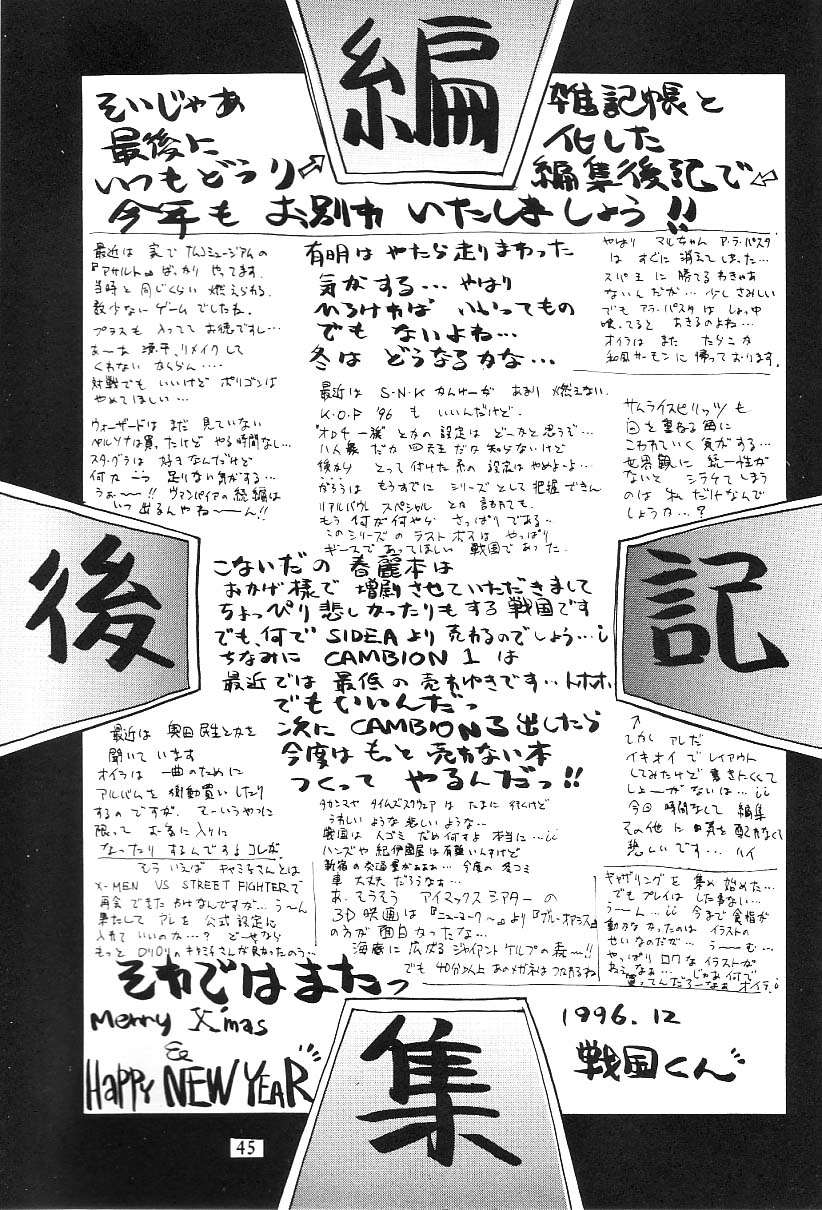 編
集
後
記
そいじゃあ
最後に
いつもどうり
雑記帳と
化した
編集後記で
今年も お別れ いたしましょう!!
最近は 実で ナムコミュージアムの
『アサルト』ばっかり やってます。
当時と 同じくらい 燃えられる
数少ないゲームでしたね。
プラスも 入ってて お徳ですし…
あ〜あ 源平、リメイクして
くれない ならん…
対戦でも いいけど ポリゴンは
やめてほしい…
ウィザードは まだ 見ていない
ペルソナは買ったけど やる時間なし…
スタグラは 好きなんだけど
何か 一つ 足りない気がする…
うぁ〜〜!! ヴァンパイアの続編は
いつ 出るんやね〜〜ん!!
有明は やたら走りまわった
気がする… やはり
ひろければ いいってもの
でも ないよね…
冬は どうなるかな…
やはり マルちゃん ア・ラ・パスタ
は すぐに 消えてしまった…
スパ王 に 勝てるわきゃぁ
ないんだが… 少しさみしい
でも アラ・パスタ は しょっ中
喰ってると あきるのよね…
オイラは また たらこか
和風サーモンに 帰っております。
最近は S・N・K かんけーが あまり 燃えない
K.O.F '96 も いいんだけど.
"オロチ一族" とかの 設定は どーかと 思うぞ…
八人衆 だか 四天王 だか 知らないけど
後から とって 付けた 系の 設定は やめよーよ…
がろうは もうすでに シリーズ として 把握 できん
リアルバウト スペシャル とか 言われても
もう 何が何やら さっぱりである…
このシリーズの ラストボスは やっぱり
ギースで あってほしい 戦国であった.
サムライスピリッツ も
回を 重ねる毎に
こわれていく 気がする…
世界観に 統一性が
ないと シラケてしまう
のは 私だけなんで
しょうか…?
こないだの 春麗本は
おかげ様で 増刷させていただきまして
ちょっぴり悲しかったりもする戦国です
でも、何で SIDEA より 売れるのでしょう…
ちなみに CAMBION 1 は
最近では 最低の 売れゆきです… トホホ
でもいいんだっ
次に CAMBION 3 出したら
今度は もっと 売れない本
つくって やるんだっ!!
最近は 奥田民生とかを
聞いて います
オイラは 一曲のために
アルバムを 衝動買い したり
するの ですが、 てーいうやつに
限って お気に入りに
なったり するんですよ コレが.
そういえば キャミィさんとは
X-MEN VS STREET FIGHTERで
再会できた わけなしですが… う〜ん
果たして アレを 公式設定に
入れて いいのか…? どーせなら
もっと ロリロリの キャミィさんが 良かったのう…
タカシマヤ タイムズスクウェア は たまに 行くけど
うれしい ような 悲しい ような…
戦国は 人ゴミ だめ 何すよ 本当に…
ハンズや 紀伊國屋は 有難いんすけど
新宿の 交通量がぁぁぁ… 今度の 冬コミ
車 大丈夫 だろうなぁ…
あ、そうそう アイマックスシアター の
3D映画は 『ニューヨーク〜』 より 『ブルーオアシス』
の方が 面白かったな…
海底に 広がる ジャイアントケルプの 森〜!!
でも 40分以上 あのメガネは つかれるね
しかし アレだ
イキオイ で レイアウト
してみたけど 書きにくくて
しょーがないは…
今回 時間なくて 編集
その他に 口気を 配れなくて
悲しいです… ハイ
ギャザリングを 集め 始めた…
でもプレイは した事ない…
う〜ん… 今まで 食指が
動かなかったのは イラストの
せいなのだが… う〜む…
やっぱり ロクな イラストが
ねぇなぁ… じゃぁ 何で
買ってんだろーなぁ オイラ
それではまたっ
Merry X'mas
&
HAPPY NEW YEAR
1996.12
戦国くん
45